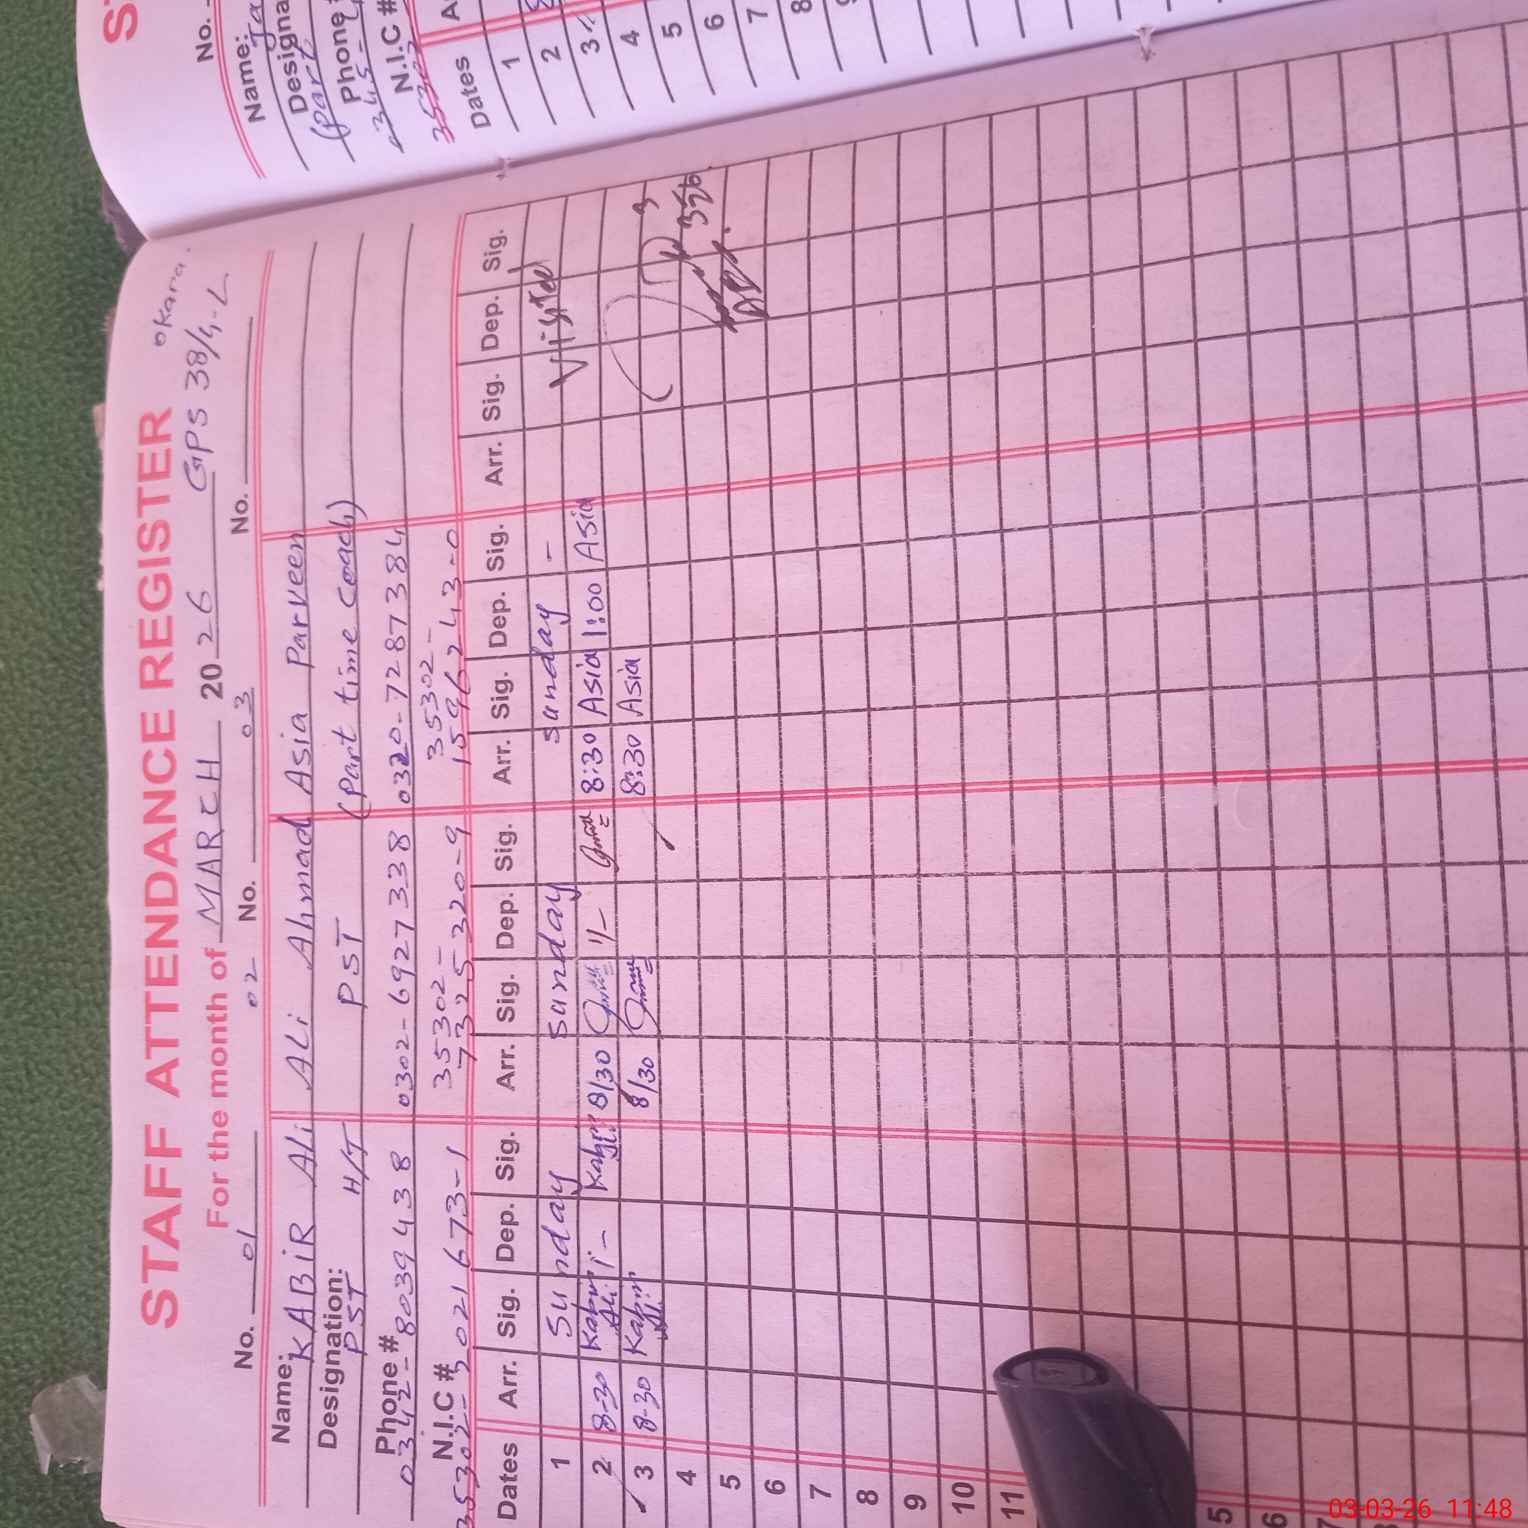 STAFF ATTENDANCE REGISTER
For the month of MARCH 2026 GPS 38/4-L Okara.
No. 01 02 No. 03 No.
Name: KABIR Ali ALi Ahmad Asia Parveen
Designation: PST H/T PST (Part time Coach)
Phone # 0342-8039438 0302-6927338 0320-7287384
N.I.C # 35302- 35302-
35302-3021673-1 7325320-9 1596243-0
Dates Arr. Sig. Dep. Sig. Arr. Sig. Dep. Sig. Arr. Sig. Dep. Sig. Arr. Sig. Dep. Sig.
1 Sunday sunday sunday - Visited
2 8-30 Kabir Ali 1- Kabir Ali 8/30 1/- 8:30 Asia 1:00 Asia
3 8-30 Kabir Ali 8/30 8:30 Asia
4
5
6
7
8
9
10
11
5
6
7
No.
Name:
Designa
(part
Phone #
0345-
N.I.C #
35302
Dates A
1
2
3
4
5
6
7
8
03-03-26 11:48